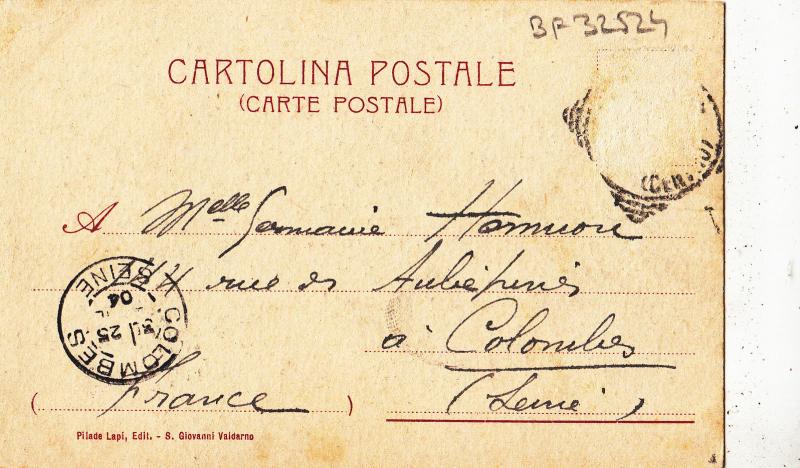 BF 32524
CARTOLINA POSTALE
(CARTE POSTALE)
(CENTRO)
A Melle Germaine Hamnon
14 rue des Aubépines
à Colombes
(France)
(Seine)
COLOMBES
SEINE
25
04
Pilade Lapi, Edit. - S. Giovanni Valdarno